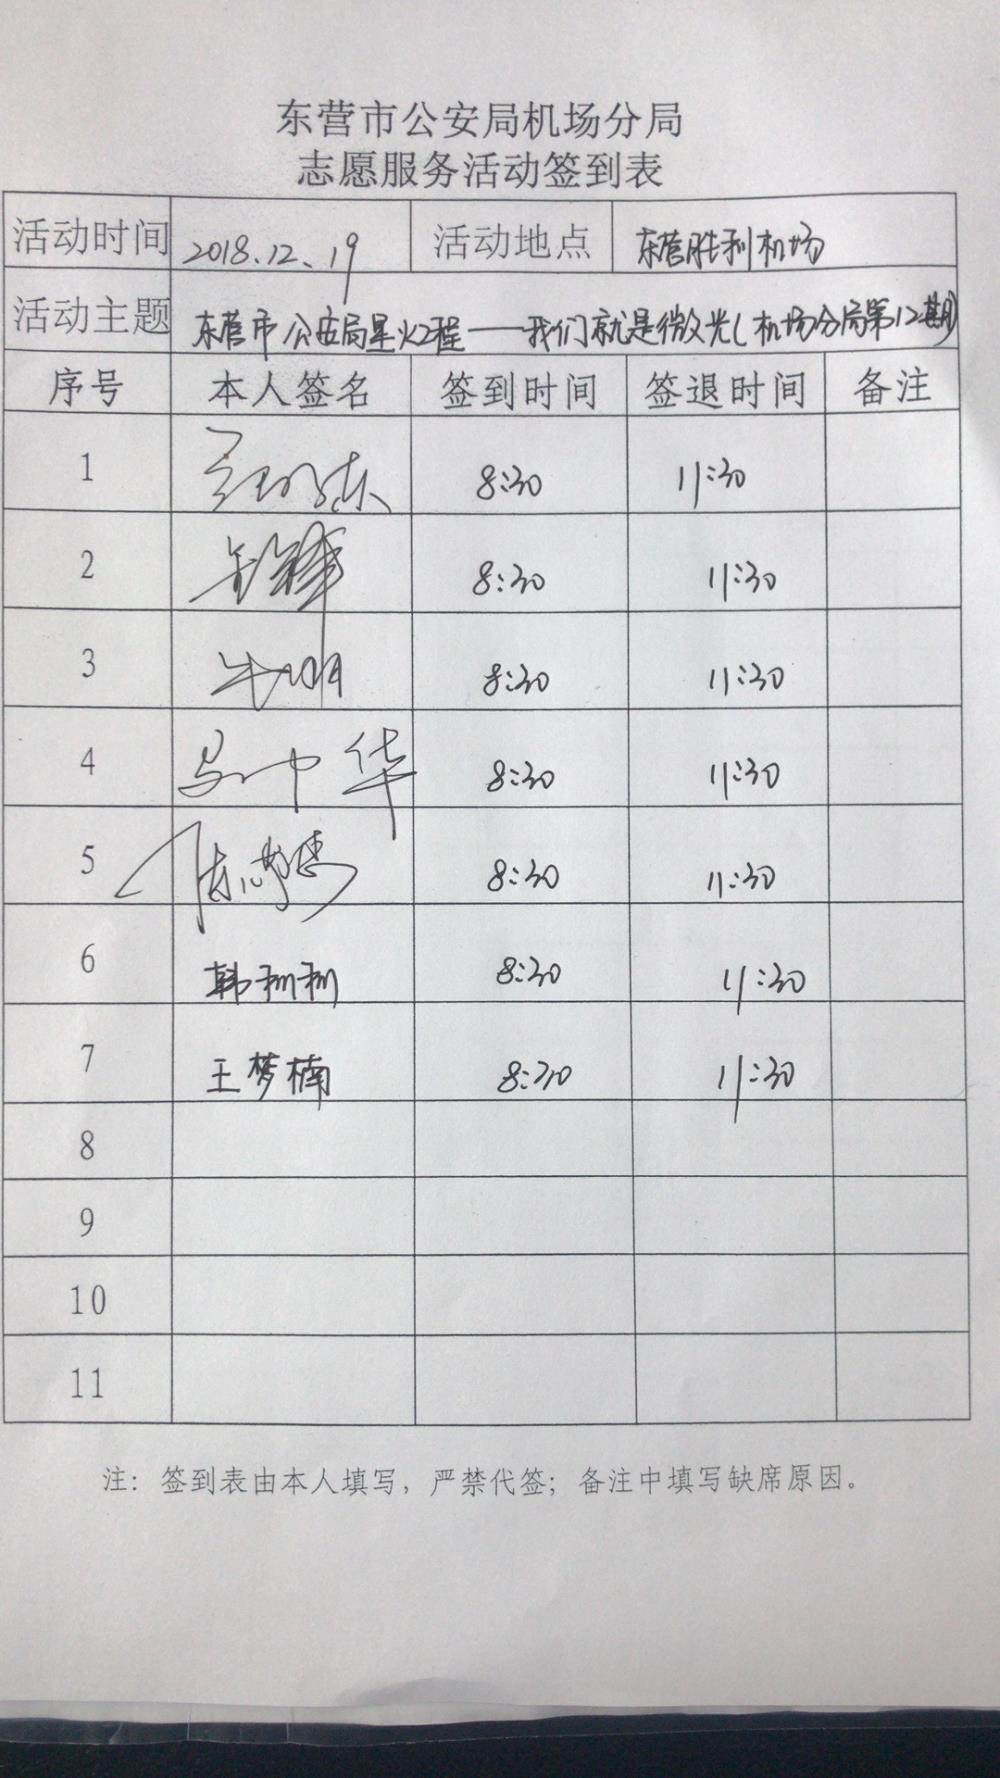 东营市公安局机场分局
志愿服务活动签到表
活动时间 2018.12.19 活动地点 东营胜利机场
活动主题 东营市公安局星火工程——我们就是微光(机场分局第12期)
序号 本人签名 签到时间 签退时间 备注
1 8:30 11:30
2 8:30 11:30
3 8:30 11:30
4 马中华 8:30 11:30
5 8:30 11:30
6 韩利利 8:30 11:30
7 王梦楠 8:30 11:30
8
9
10
11
注：签到表由本人填写，严禁代签；备注中填写缺席原因。